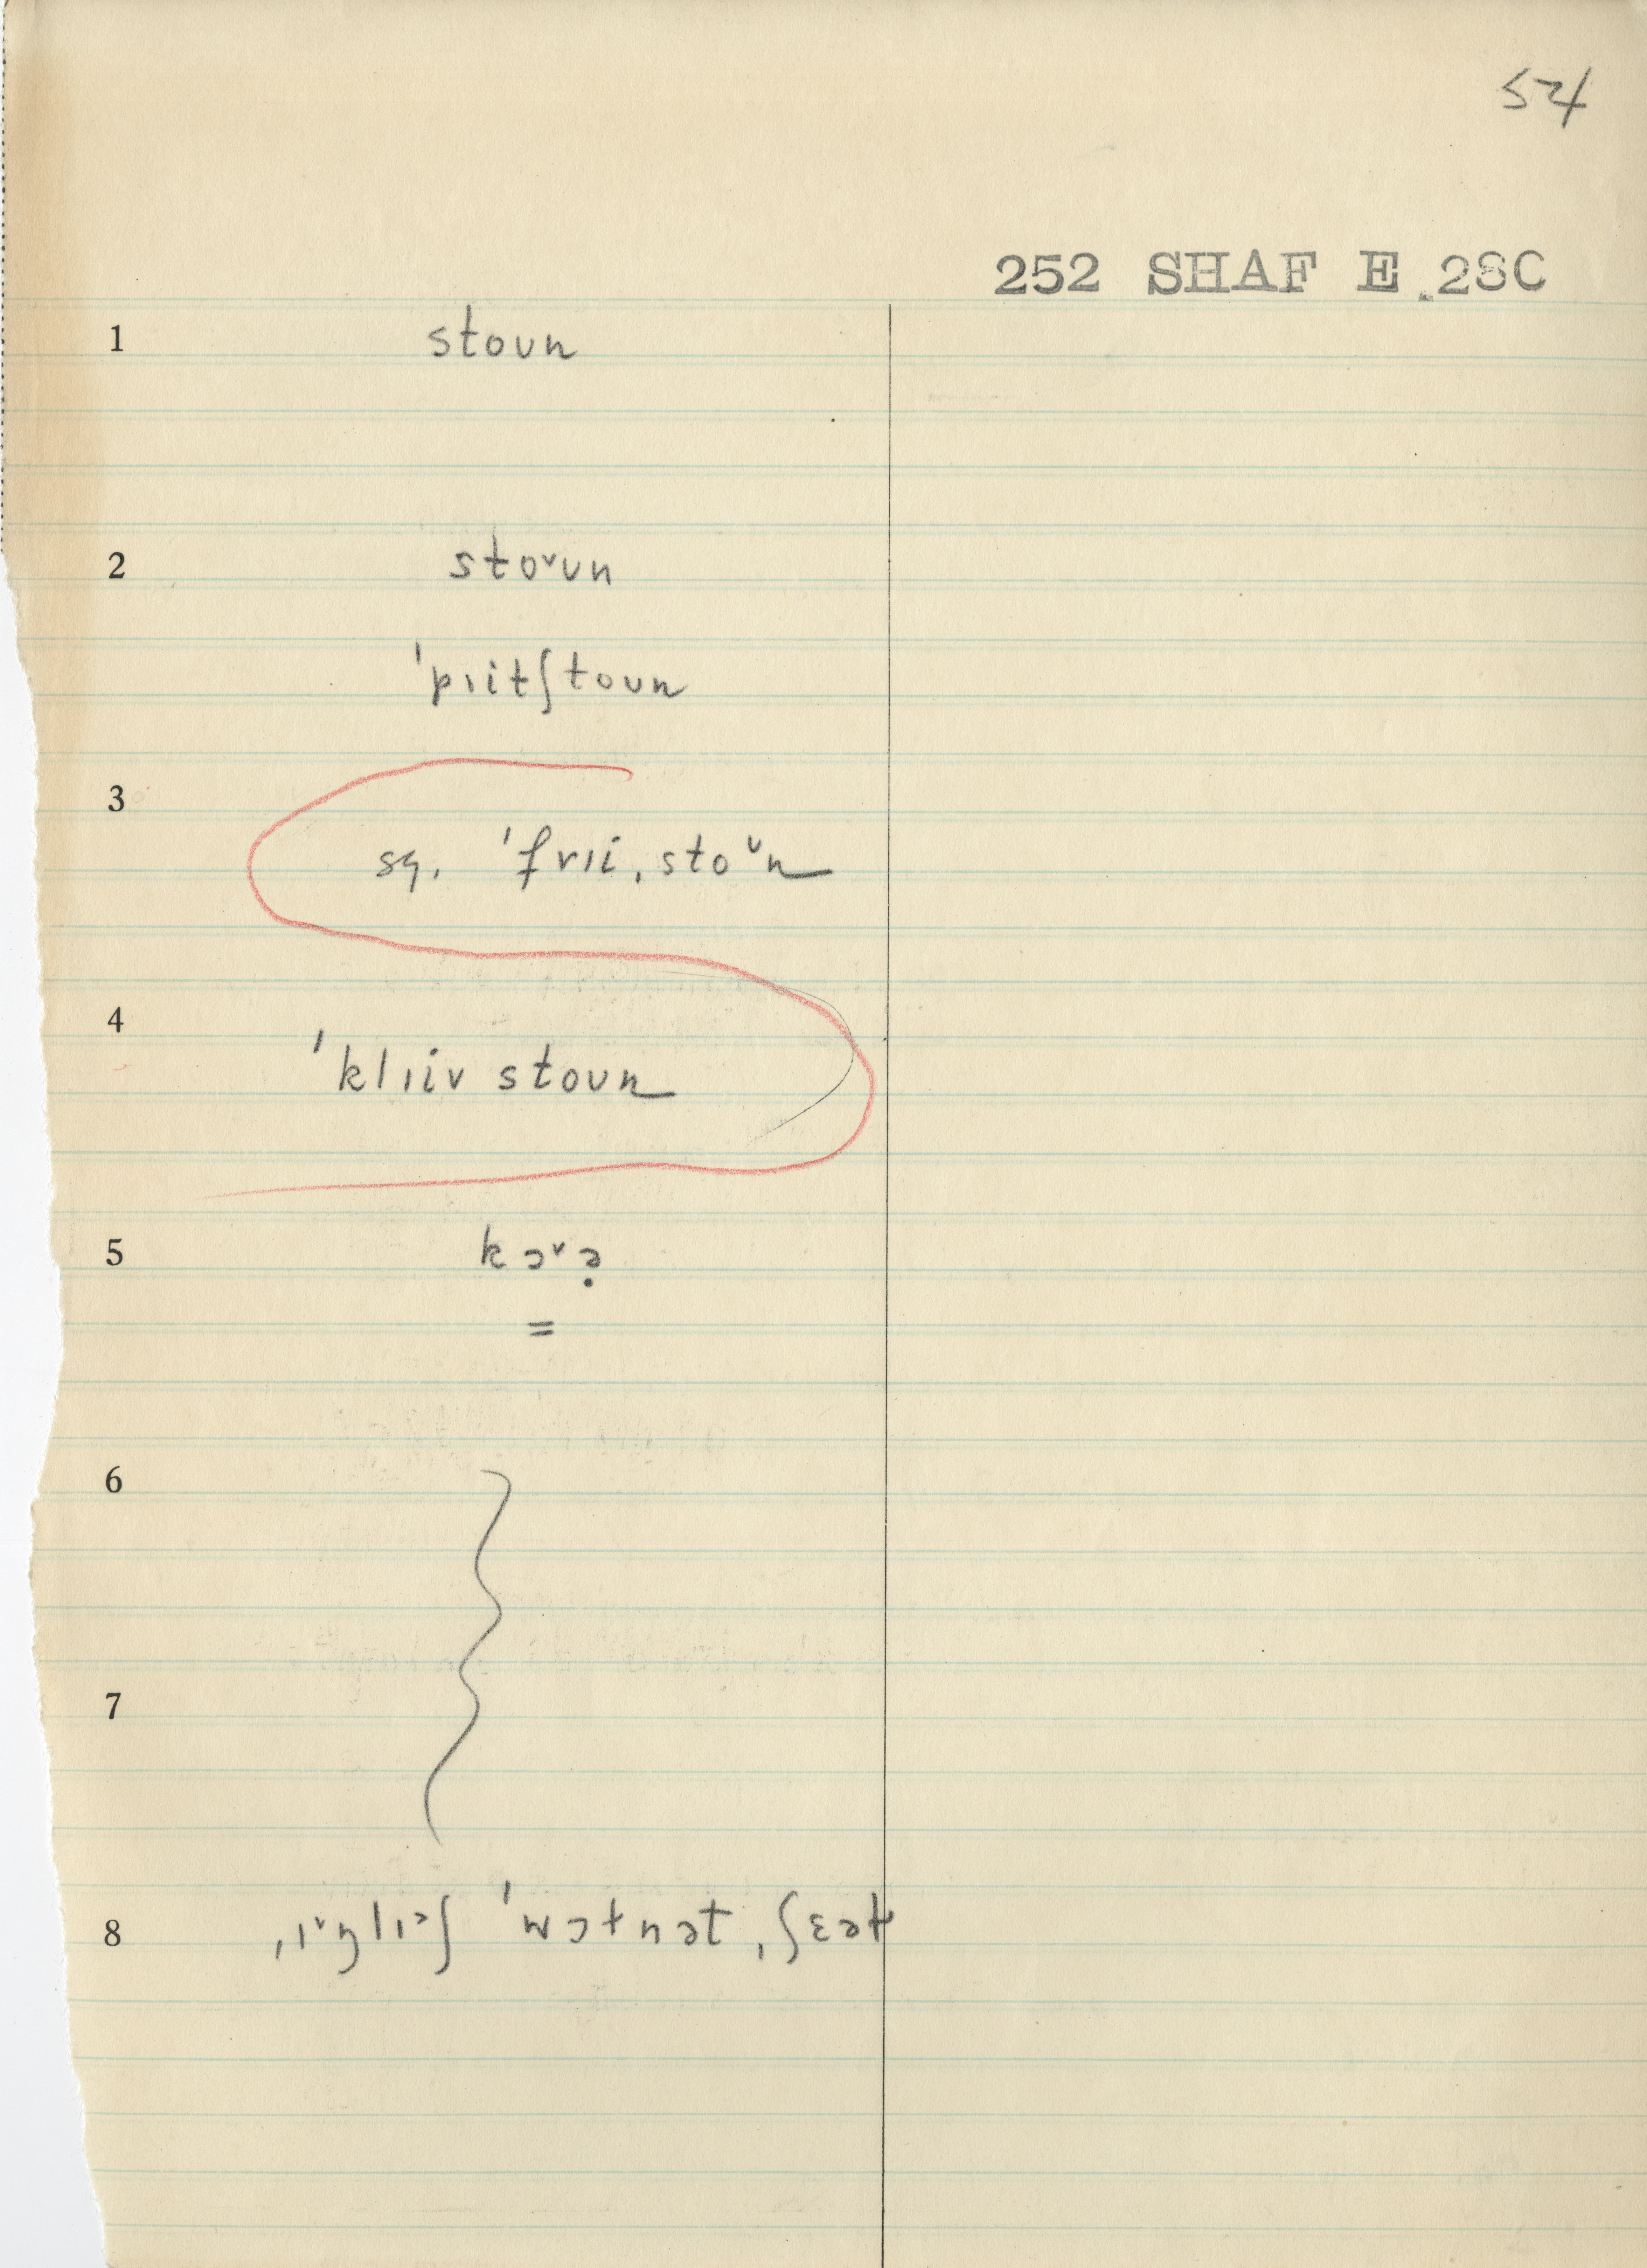 54
252 SHAF E 28C
1 stoun
2 stoᵛun
ˈpɪitʃtoun
3 sq. ˈfrɪi ˌstoᵛn
4 ˈklɪiv stoun
5 kɔᵛə̣
=
6
7
8 ˌɪᵛŋlɪʃ ˈwɔtnət ˌʃɛət